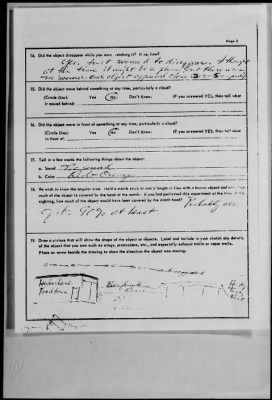 Page 3
14. Did the object disappear while you were watching it? If so, how?
Yes. Just seemed to disappear. I thought
at the time it might be a plane, but there was
no sound and object appeared close,
15. Did the object move behind something at any time, particularly a cloud?
(Circle One): Yes No Don't Know. (If you answered YES, then tell what
it moved behind:
16. Did the object move in front of something at any time, particularly a cloud?
(Circle One): Yes No Don't Know. (If you answered YES, then tell what
it moved in front of:
17. Tell in a few words the following things about the object:
a. Sound No sound
b. Color Red or Orange
18. We wish to know the angular size. Hold a match stick at arm's length in line with a known object and note how
much of the object is covered by the head of the match. If you had performed this experiment at the time of the
sighting, how much of the object would have been covered by the match head? Probably
of it. 90% at least
19. Draw a picture that will show the shape of the object or objects. Label and include in your sketch any details
of the object that you saw such as wings, protrusions, etc., and especially exhaust trails or vapor trails.
Place an arrow beside the drawing to show the direction the object was moving.
disappeared
Foodtown
River